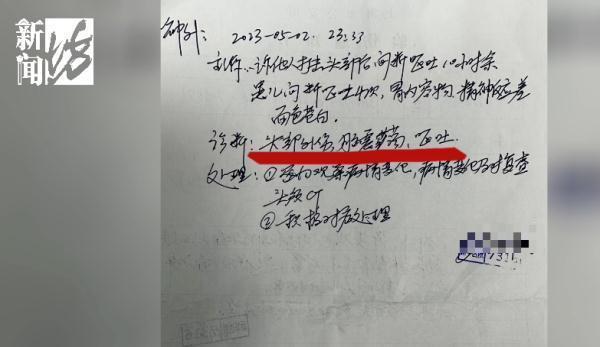 新闻坊
神外: 2023-05-02. 23:33
主诉: 诉他人打击头部后间断呕吐10小时余
患儿间断呕吐4次, 胃内容物, 精神略差
面色苍白.
诊断: 头部外伤, 脑震荡, 呕吐.
处理: ①密切观察病情变化, 病情变化及时复查
头颅CT
②积极对症处理